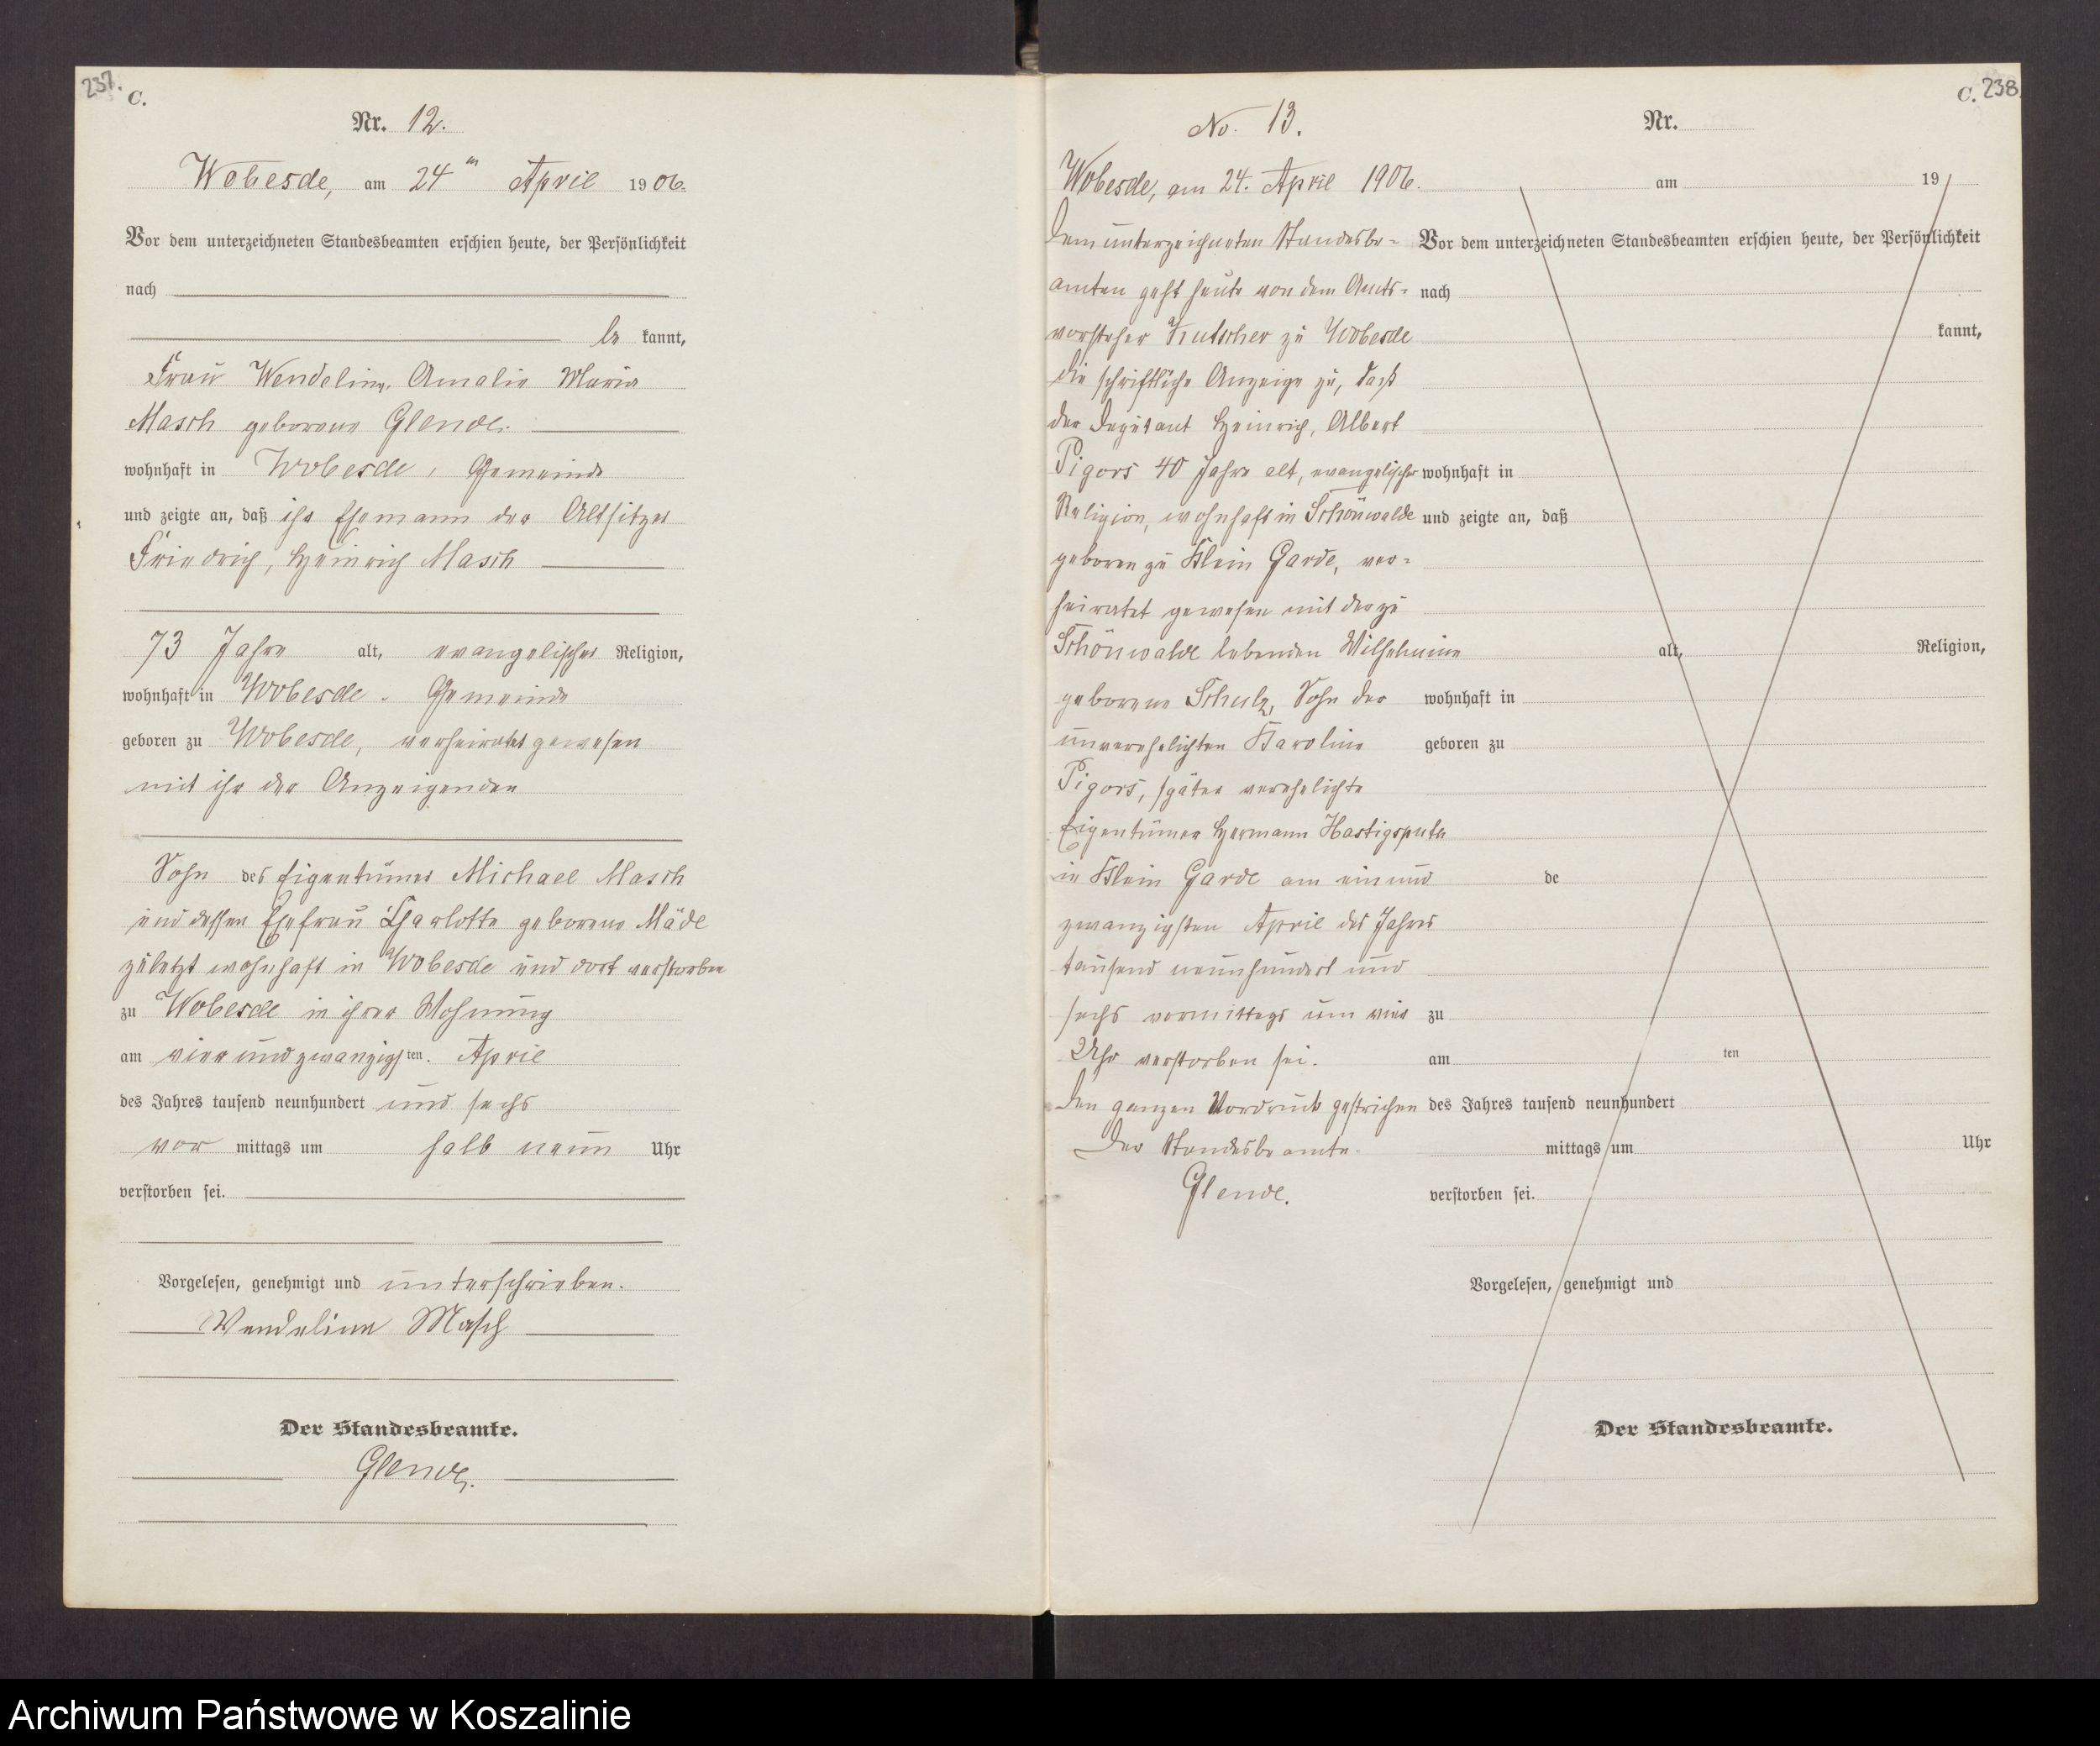 237.
C.
Nr. 12.
Wobesde, am 24ten April 1906.
Vor dem unterzeichneten Standesbeamten erschien heute, der Persönlichkeit
nach
be kannt,
Frau Wendeline, Amalie Maria
Masch geborene Glende.
wohnhaft in Wobesde, Gemeinde
und zeigte an, daß ihr Ehemann der Altsitzer
Friedrich, Heinrich Masch
73 Jahre alt, evangelischer Religion,
wohnhaft in Wobesde. Gemeinde
geboren zu Wobesde, verheiratet gewesen
mit ihr der Anzeigenden
Sohn des Eigentümer Michael Masch
und dessen Ehefrau Charlotte geborene Mäde
zuletzt wohnhaft in Wobesde und dort verstorben
zu Wobesde in ihrer Wohnung
am vier und zwanzigsten. April
des Jahres tausend neunhundert und sechs
vor mittags um halb neun Uhr
verstorben sei.
Vorgelesen, genehmigt und unterschrieben.
Wendeline Masch
Der Standesbeamte.
Glende.
C. 238.
No. 13.
Wobesde, am 24. April 1906.
Dem unterzeichneten Standesbe-
amten geht heute von dem Amts-
vorsteher Kutscher zu Wobesde
die schriftliche Anzeige zu, daß
der Deputant Heinrich, Albert
Pigors 40 Jahre alt, evangelischer
Religion, wohnhaft in Schönwalde
geboren zu Klein Garde, ver-
heiratet gewesen mit der zu
Schönwalde lebenden Wilhelmine
geborene Schulz, Sohn der
unverehelichten Karoline
Pigors, später verehelichte
Eigentümer Hermann
in Klein Garde am ein und
zwanzigsten April des Jahres
tausend neunhundert und
sechs vormittags um vier
Uhr verstorben sei.
Den ganzen Vordruck gestrichen
Der Standesbeamte.
Glende.
Nr.
am 19
Vor dem unterzeichneten Standesbeamten erschien heute, der Persönlichkeit
nach
kannt,
wohnhaft in
und zeigte an, daß
alt, Religion,
wohnhaft in
geboren zu
de
zu
am ten
des Jahres tausend neunhundert
mittags um Uhr
verstorben sei.
Vorgelesen, genehmigt und
Der Standesbeamte.
Archiwum Państwowe w Koszalinie